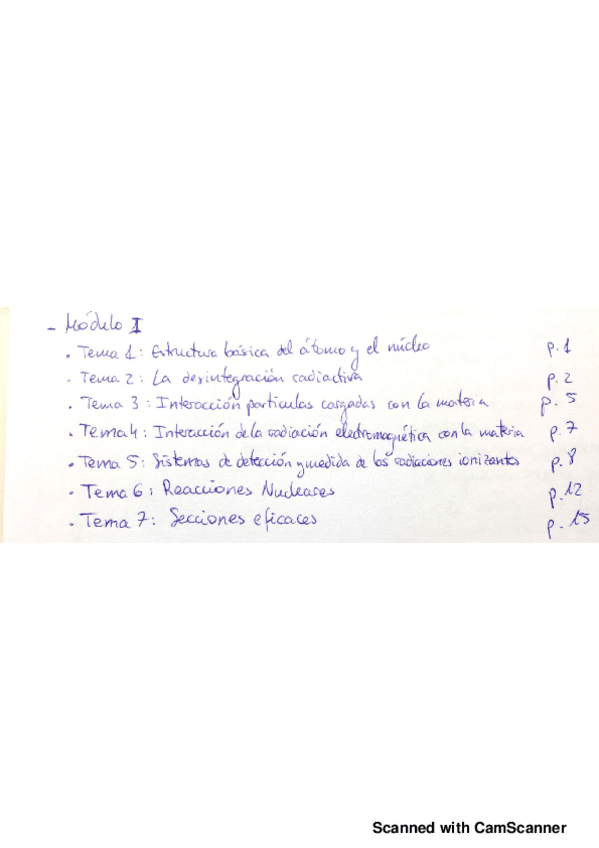 - Módulo I
. Tema 1: Estructura básica del átomo y el núcleo p.1
. Tema 2: La desintegración radiactiva p.2
. Tema 3: Interacción partículas cargadas con la materia p.5
. Tema 4: Interacción de la radiación electromagnética con la materia p.7
. Tema 5: Sistemas de detección y medida de las radiaciones ionizantes p.8
. Tema 6: Reacciones Nucleares p.12
. Tema 7: Secciones eficaces p.15
Scanned with CamScanner